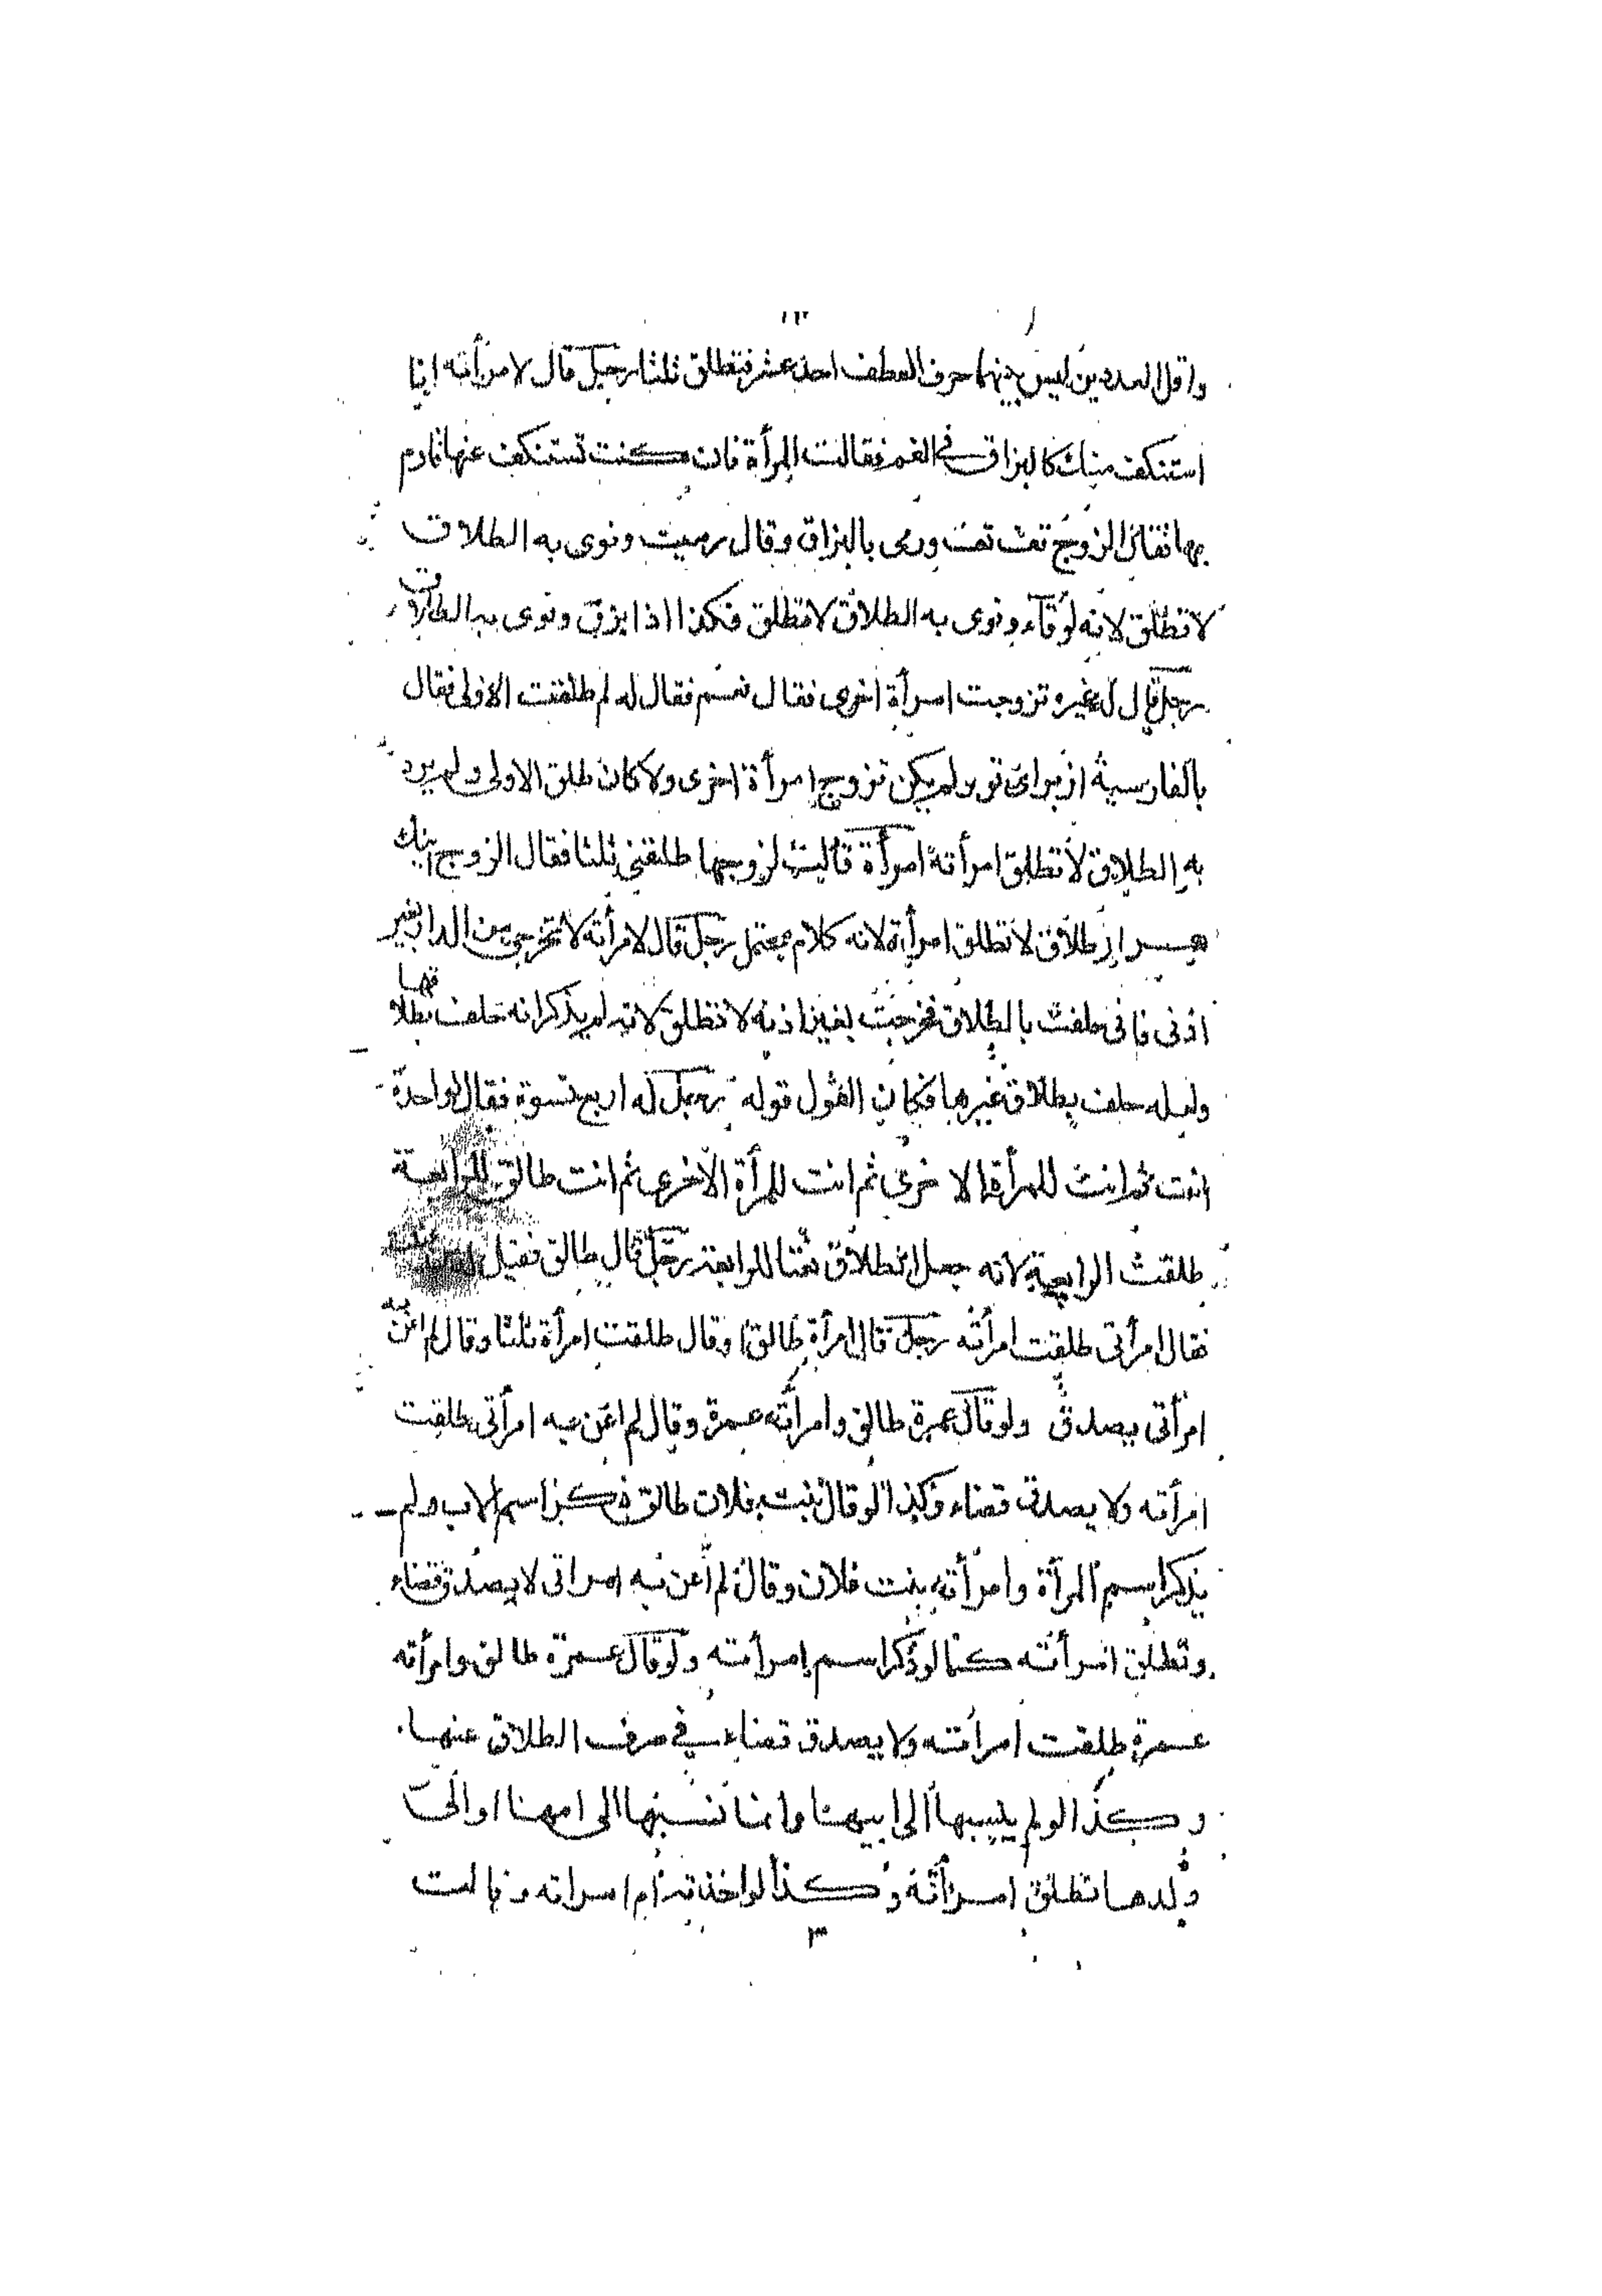 واقل العددين ليس بينهما حرف العطف احد عشر فتطلق ثلثا رجل قال لامرأته انا
استنكف منك كالبزاق في الفم فقالت المرأة فان كنت تستنكف عنها فارم
بها فقال الزوج تفت تفت ورمى بالبزاق وقال رميت ونوى به الطلاق
لا تطلق لانه لو قاء ونوى به الطلاق لا تطلق فكذا اذا بزق ونوى به الطلاق
رجل قال لغيره تزوجت امرأة اخرى فقال نعم فقال له لم طلقت الاولى فقال
بالفارسية از براى تو ولم يكن تزوج امرأة اخرى ولا كان طلق الاولى ولم يرد
به الطلاق لا تطلق امرأته امرأة قالت لزوجها طلقني ثلثا فقال الزوج اينك
هزار طلاق لا تطلق امرأة لانه كلام محتمل رجل قال لامرأته لا تخرجي من الدار بغير
اذنى فانى حلفت بالطلاق فخرجت بغير اذنه لا تطلق لانه لم يذكر انه حلف بطلاقها
ولعله حلف بطلاق غيرها فكان القول قوله رجل له اربع نسوة فقال لواحدة
انت ثم انت للمرأة الاخرى ثم انت للمرأة الاخرى ثم انت طالق للرابعة
طلقت الرابعة لانه جعل الطلاق نعتا للرابعة رجل قال طالق فقيل
فقال امرأتى طلقت امرأته رجل قال امرأة طالق او قال طلقت امرأة ثلثا وقال لم اعن به
امرأتى يصدق ولو قال عمرة طالق وامرأته عمرة وقال لم اعن به امرأتى طلقت
امرأته ولا يصدق قضاء وكذا لو قال بنت فلان طالق ذكر اسم الاب ولم
يذكر اسم المرأة وامرأته بنت فلان وقال لم اعن به امراتى لا يصدق قضاء
وتطلق امرأته كما لو ذكر اسم امرأته ولو قال عمرة طالق وامرأته
عمرة طلقت امرأته ولا يصدق قضاء في صرف الطلاق عنها
وكذا لو لم ينسبها الى ابيها وانما نسبها الى امها او الى
ولدها تطلق امرأته وكذا لو اخذته ام امراته وقالت
٣